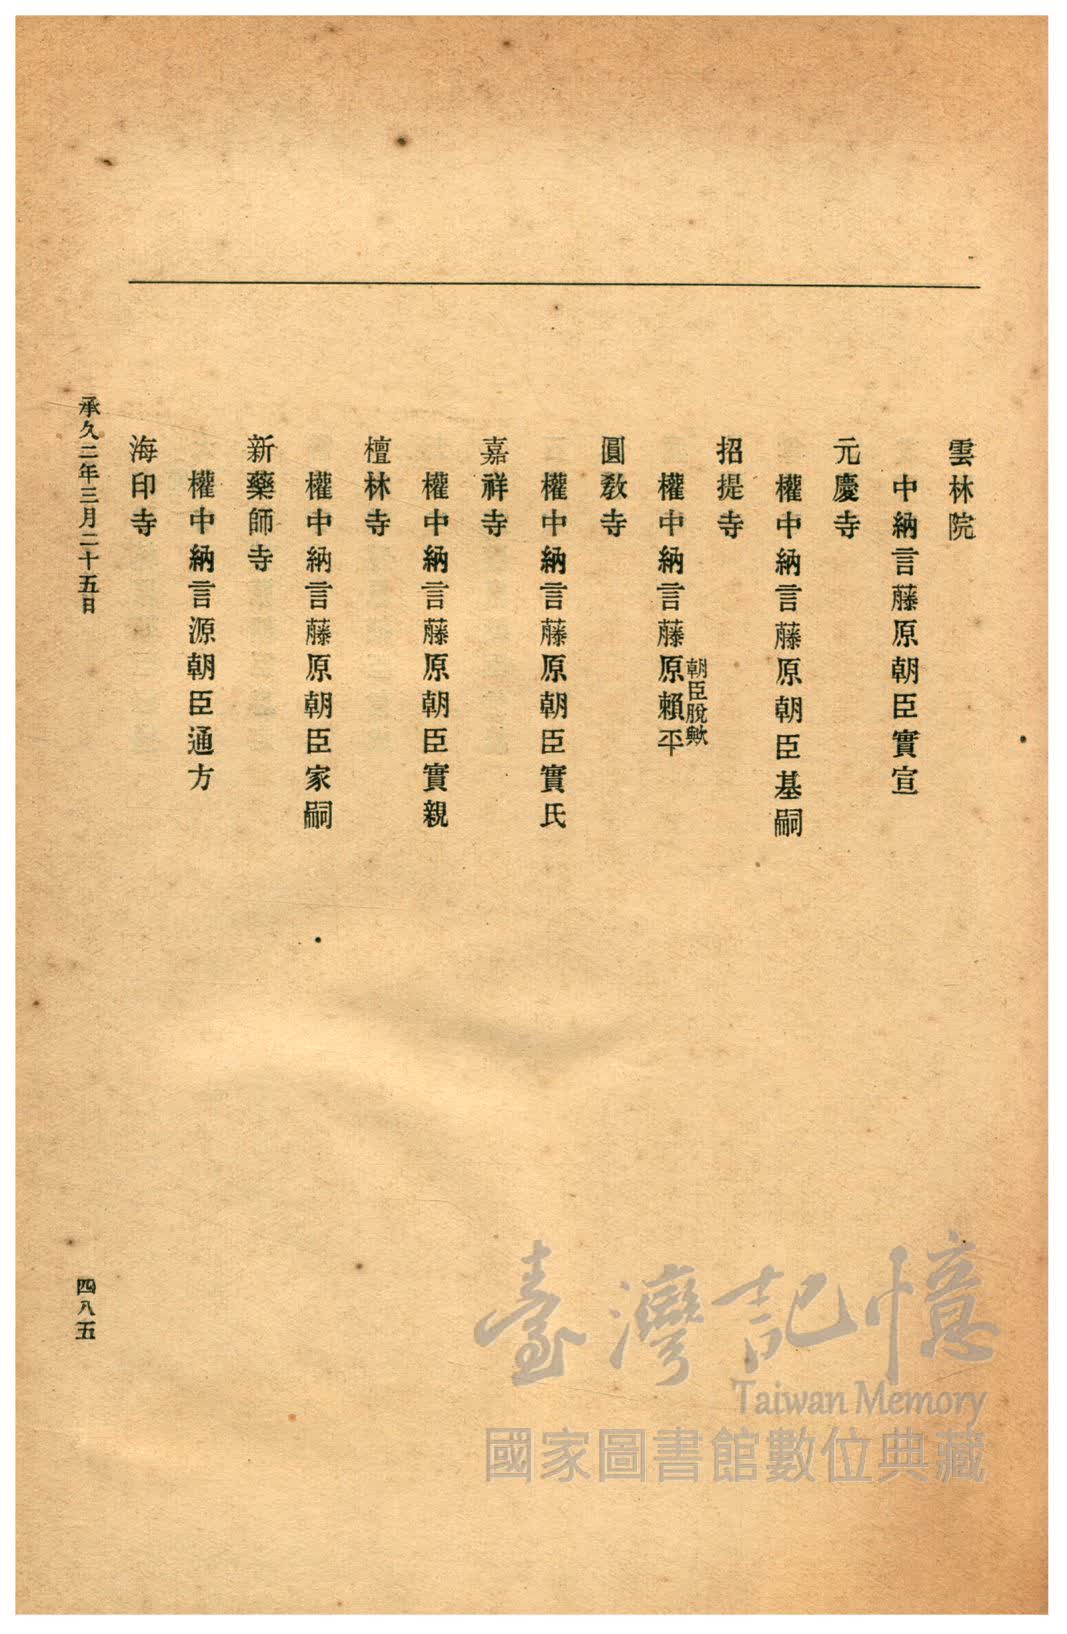 雲林院
中納言藤原朝臣實宣
元慶寺
權中納言藤原朝臣基嗣
招提寺
朝臣脫歟
權中納言藤原賴平
圓敎寺
權中納言藤原朝臣實氏
嘉祥寺
權中納言藤原朝臣實親
檀林寺
權中納言藤原朝臣家嗣
新藥師寺
權中納言源朝臣通方
海印寺
承久二年三月二十五日
四八五
臺灣記憶
Taiwan Memory
國家圖書館數位典藏